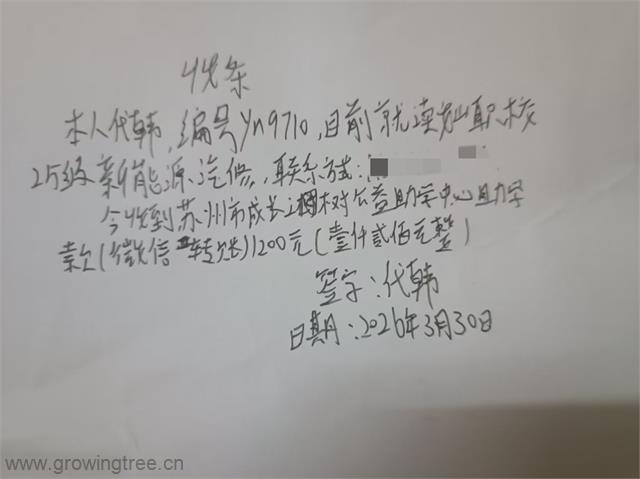 收条
本人代韩,编号yn9710,目前就读 职校
25级新能源汽修,联系方式:
今收到苏州市成长树公益助学中心助学
款(微信转账)1200元(壹仟贰佰元整)
签字:代韩
日期:2026年3月30日
www.growingtree.cn